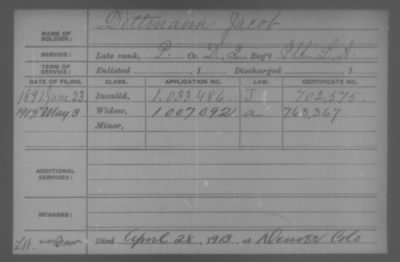 NAME OF SOLDIER: Dittmann Jacob
SERVICE: Late rank, P. Co. D, 2 Reg't Ill. L. A.
TERM OF SERVICE: Enlisted , 1 Discharged , 1
DATE OF FILING. CLASS. APPLICATION NO. LAW. CERTIFICATE NO.
1891 June 23 Invalid, 1.033486. J 702.575.
1913 May 3 Widow, 1007092 a 763,367
Minor,
ADDITIONAL SERVICES:
REMARKS:
Died April 28, 1913, at Denver Colo